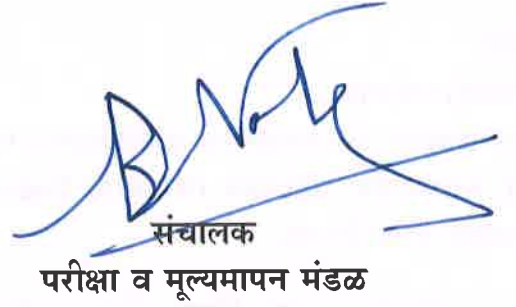 संचालक
परीक्षा व मूल्यमापन मंडळ